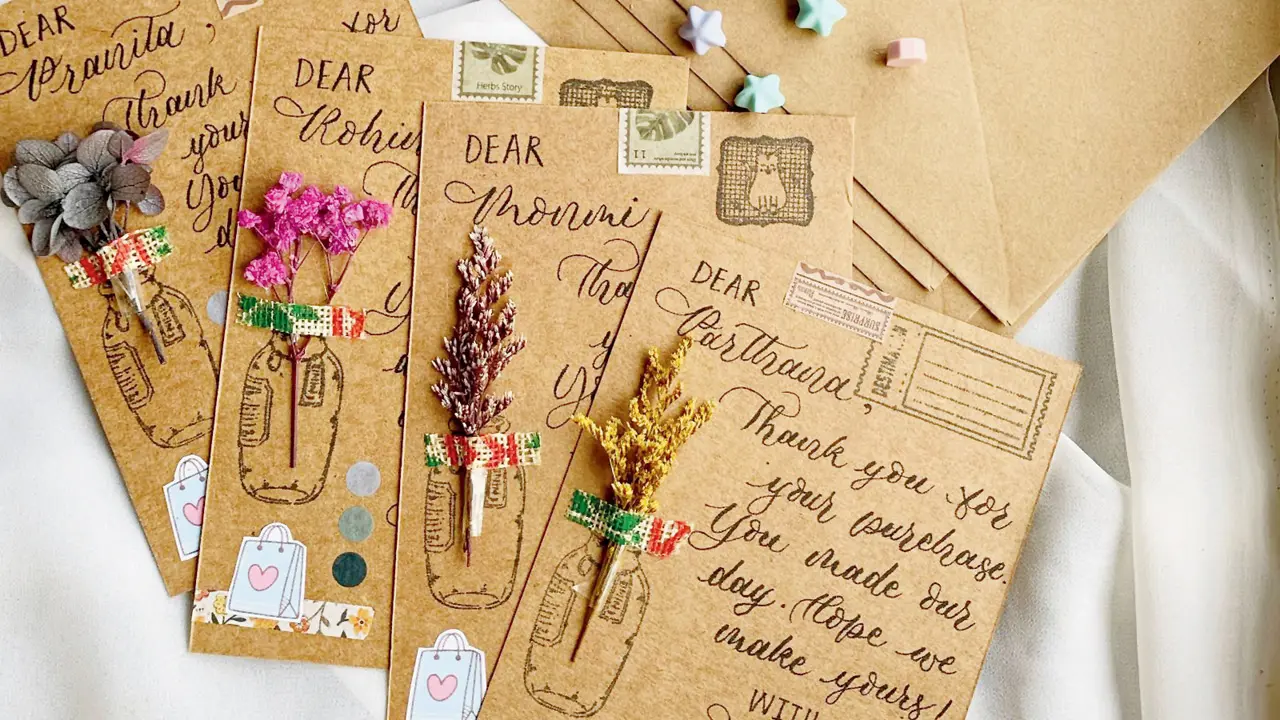 DEAR
Pranita,
Thank
for
your
You
DEAR
Herbs Story
DEAR
Mommi
Tha
y
Yo
11
DEAR
Parthana,
SURPRISE
DESTINA
Thank you for
your purchase.
You made our
day. Hope we
make yours!
WITH